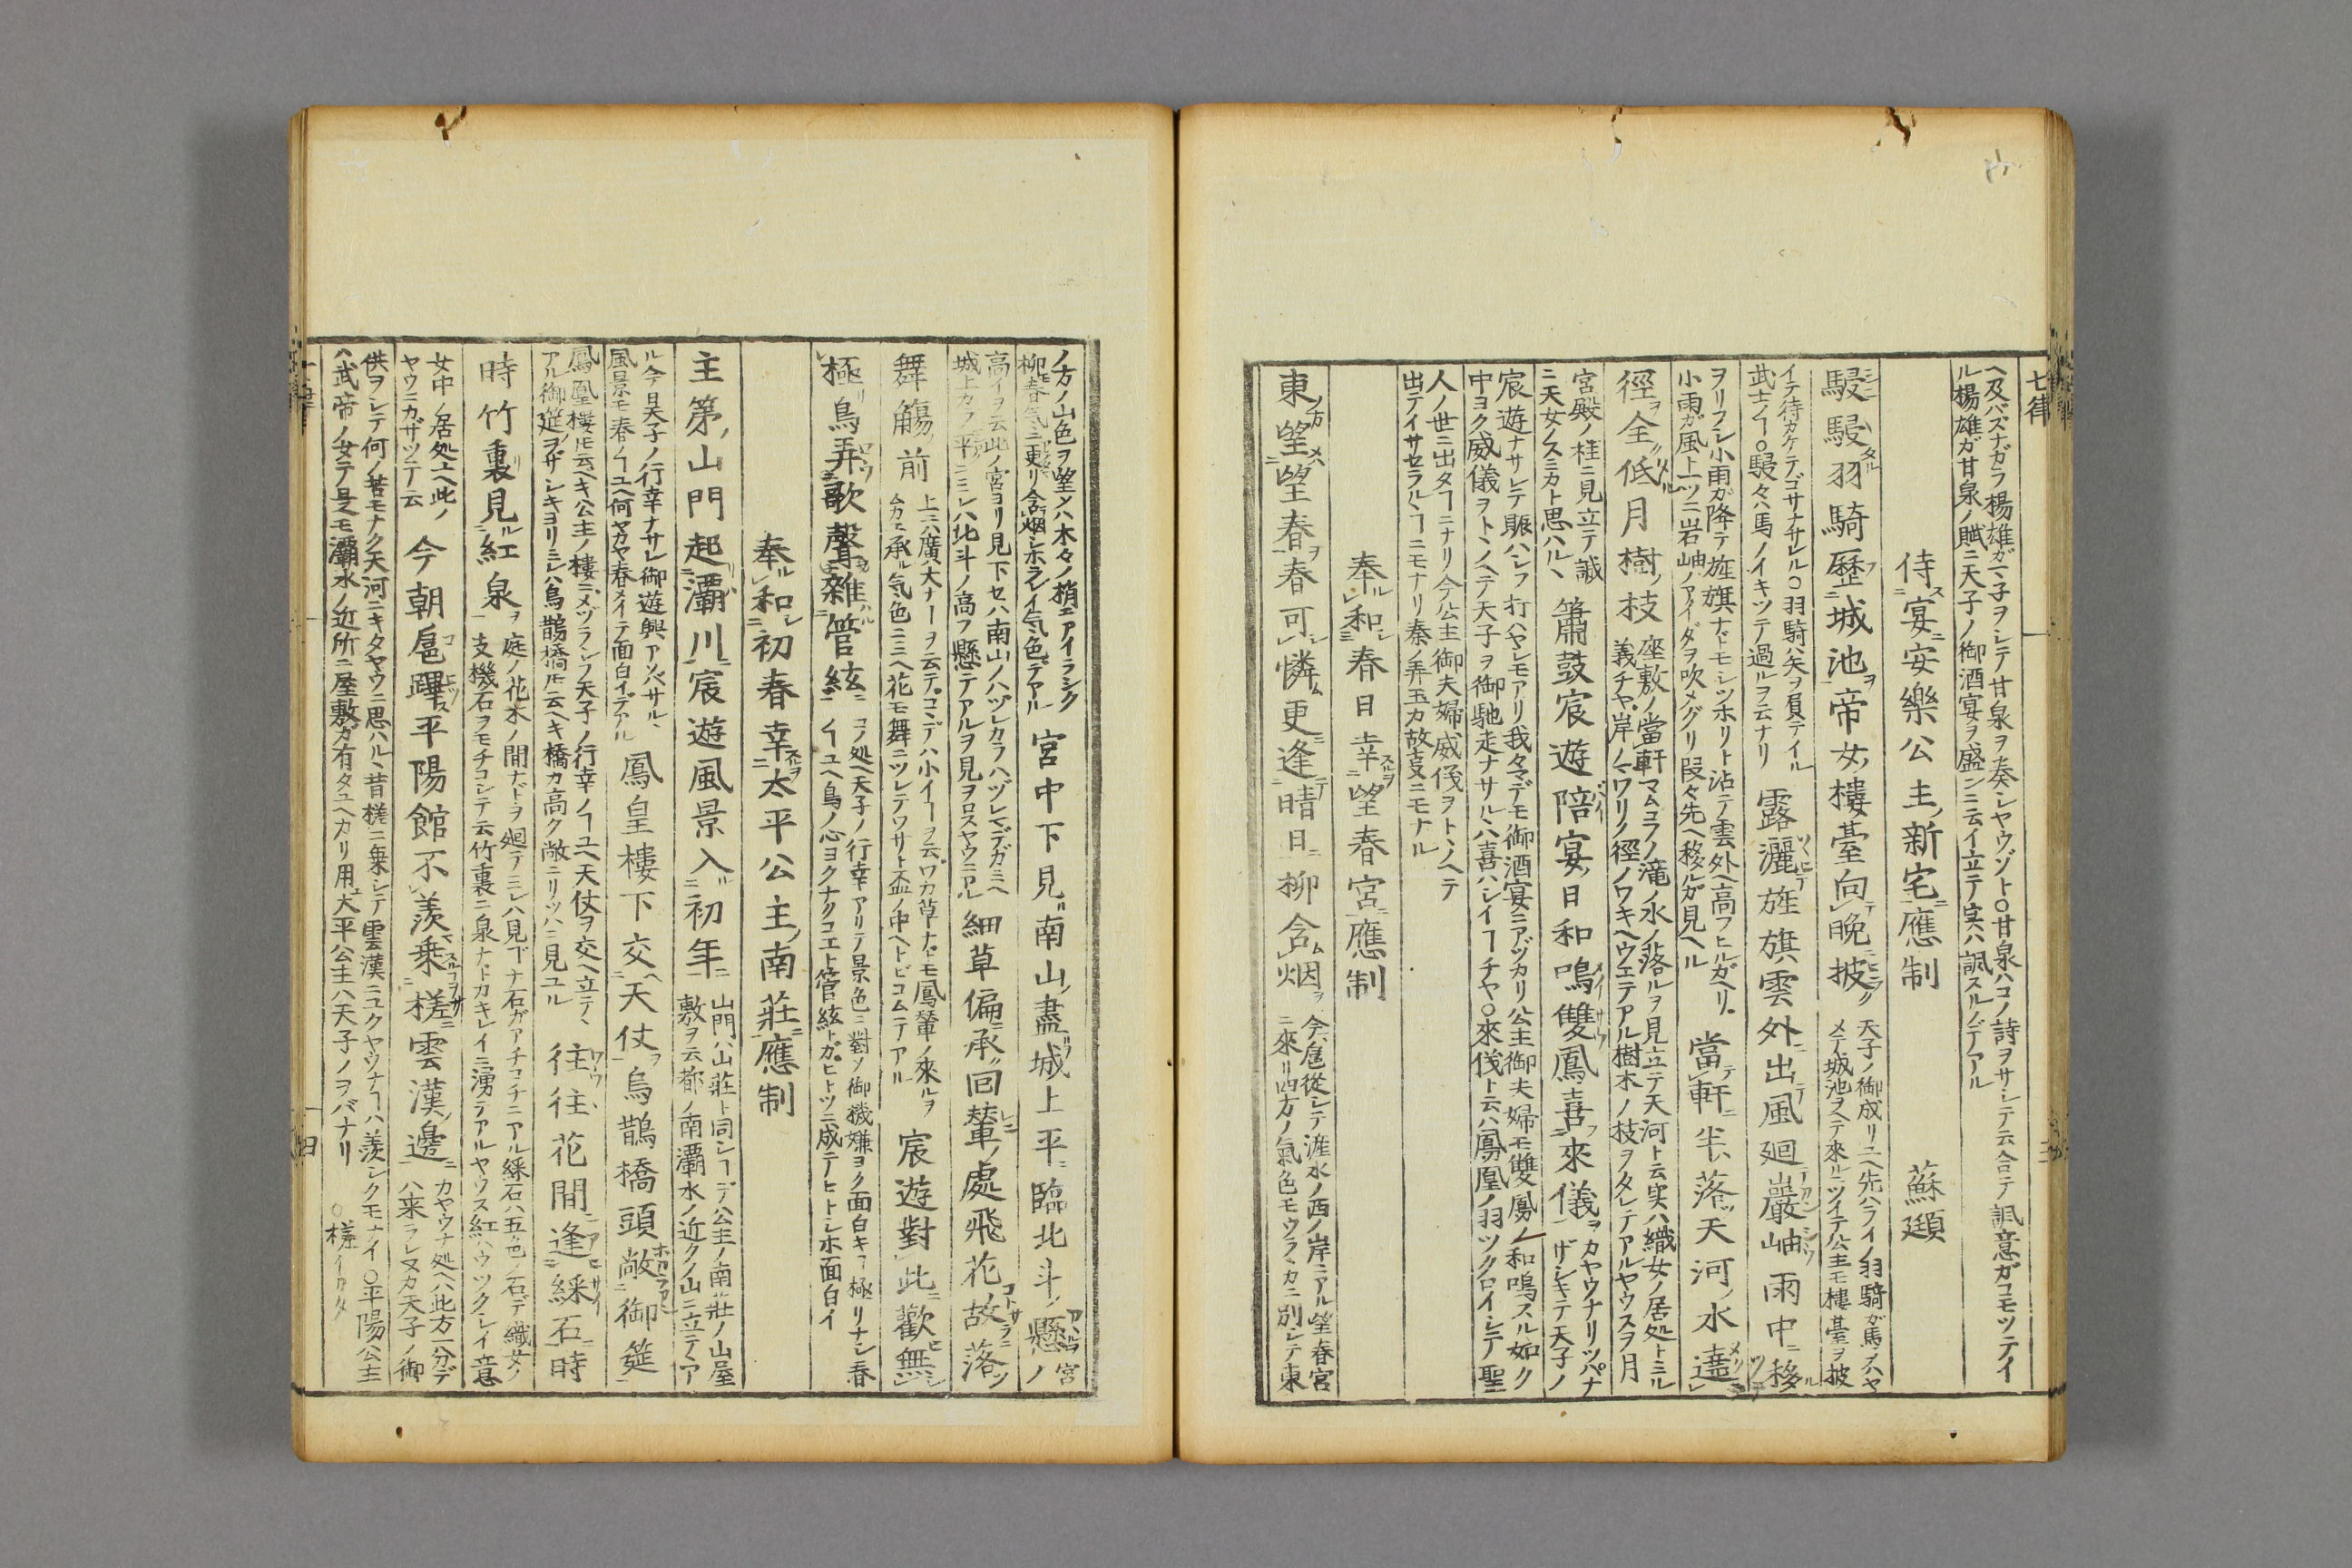 七律
ヘ及バズナガラ楊雄ガ子ヲシテ甘泉ヲ奏シヤウゾト〇甘泉ハコノ詩ヲサシテ云合テ諷意ガコモツテイ
ル楊雄ガ甘泉ノ賦ニ天子ノ御酒宴ヲ盛ンニ云イ立テ実ハ諷スルノデアル
侍宴安樂公主新宅應制 蘇頲
駸駸羽騎歷城池帝女樓臺向晩披
天子ノ御成リユヘ先ハライノ羽騎ガ馬ヲハヤ
メテ城池ヲヘテ來ルニツイテ公主モ樓臺ヲ披
イテ待カケテゴサナサレル〇羽騎ハ矢ヲ負テイル
武士ノ〇駸々ハ馬ノイキツテ過ルヲ云ナリ
露灑旌旗雲外出風廻巖岫雨中移
ヲリフシ小雨ガ降テ旌旗ナドモシツホリト沾テ雲外ヘ高フヒルガヘリ
小雨ガ風ト一ツニ岩岫ノアイダヲ吹メグリ段々先ヘ移ルガ見ヘル
當軒半落天河水遶
徑全低月樹枝
座敷ノ當軒マムコフノ滝ノ水ノ落ルヲ見立テ天河ト云実ハ織女ノ居処トミル
義チヤ岸ノマワリノ徑ノワキヘウエテアル樹木ノ枝ヲタレテアルヤウスヲ月
宮殿ノ桂ニ見立テ誠
ニ天女ノスミカト思ハル
簫鼓宸遊陪宴日和鳴雙鳳喜來儀
カヤウナリツパナ
ザシキテ天子ノ
宸遊ナサレテ賑ハシフ打ハヤシモアリ我々マデモ御酒宴ニアヅカリ公主御夫婦モ雙鳳ノ和鳴スル如ク
中ヨク威儀ヲトノヘテ天子ヲ御馳走ナサルハ喜ハシイチヤ〇來儀ト云ハ鳳凰ノ羽ツクロイシテ聖
人ノ世ニ出タニナリ今公主御夫婦威儀ヲトノヘテ
出テイサセラルニモナリ秦ノ弄玉カ故ニモナル
奉和春日幸望春宮應制
東望望春春可憐更逢晴日柳含烟
今扈從シテ滻水ノ西ノ岸ニアル望春宮
ニ來リ四方ノ氣色モウラカニ別シテ東
ノ方ノ山色ヲ望メハ木々ノ梢ニアイラシク
柳モ春気ニ更リ含烟シホラシイ気色デアル
宮中下見南山盡城上平臨北斗懸
宮ノ
高イヲ云此ノ宮ヨリ見下セハ南山ノハヅレカラハヅレマデガミヘ
城上カラ平ニミレハ北斗ノ高フ懸テアルヲ見ヲロスヤウニアル
細草偏承回輦處飛花故落
舞觴前
上ニハ廣大ナーヲ云テコデハ小イーヲ云ワカ草ナドモ鳳輦ノ來ルヲ
ムカヘ承ル気色ニミヘ花モ舞ニツレテワサト盃ノ中ヘトビコムテアル
宸遊對此歡無
極鳥弄歌聲雜管絃
コノ処ヘ天子ノ行幸アリテ景色ニ對ソ御機嫌ヨク面白キ極リナシ春
ノユヘ鳥ノ心ヨクナクコエト管絃トガヒトツニ成テヒトシホ面白イ
奉和初春幸太平公主南莊應制
主第山門起灞川宸遊風景入初年
山門ハ山莊ト同シーデ公主ノ南莊ノ山屋
敷ヲ云都ノ南灞水ノ近クノ山ニ立テア
ル今日天子ノ行幸ナサレ御遊興アソバサル
風景モ春ノユヘ何ヤカヤ春メイテ面白イデアル
鳳皇樓下交天仗烏鵲橋頭敞御筵
鳳凰樓トモ云ヘキ公主ノ樓ニメヅラシフ天子ノ行幸ノユヘ天仗ヲ交ヘ立テ
アル御筵ヲザシキヨリミレハ烏鵲橋トモ云ヘキ橋カ高ク敞ニリツハニ見ユル
往往花間逢綵石時
時竹裏見紅泉
庭ノ花木ノ間ナドヲ廻テミレハ見事ナ石ガアチコチニアル綵石ハ五色ノ石デ織女ノ
支機石ヲモチコシテ云竹裏ニ泉ナトカキレイニ湧テアルヤウス紅ハウツクシイ意
今朝扈蹕平陽館不羨乗槎雲漢邊
女中ノ居処ユヘ此ノ
ヤウニカザツテ云
カヤウナ処ヘハ此方ノ分デ
ハ来ラレヌカ天子ノ御
供ヲシテ何ノ苦モナク天河ニキタヤウニ思ハル昔槎ニ乗シテ雲漢ニユクヤウナーハ羨シクモナイ〇平陽公主
ハ武帝ノ女テ是モ灞水ノ近所ニ屋敷ガ有タユヘカリ用大平公主ハ天子ノヲバナリ 〇槎イカタ